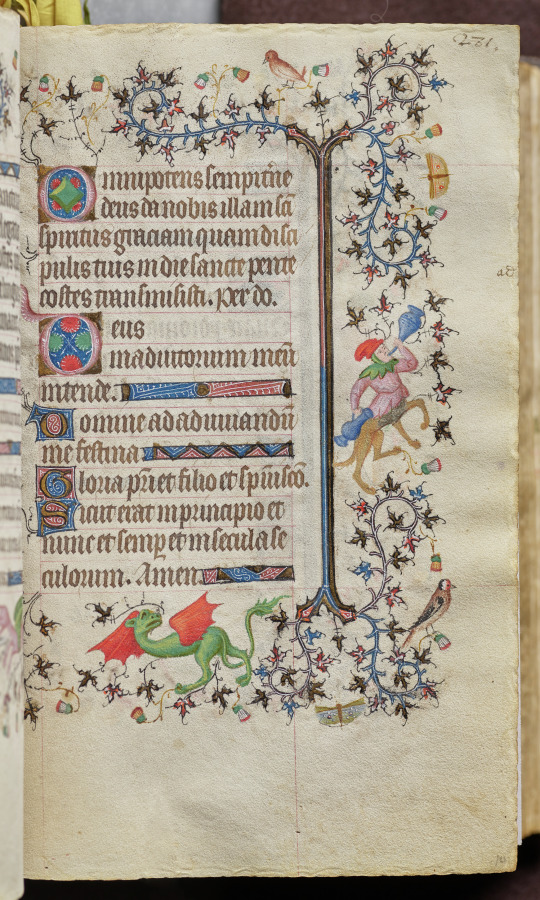 271.
Omnipotens sempit̃ne
deus da nobis illam sc̃i
spiritus graciam quam disci
pulis tuis in die sancte pente
costes transmisisti. Per do.
Deus
in adiutorium meũ
intende.
Domine ad adiuuandũ
me festina
Gloria pr̃i et filio et spũi scõ.
Sicut erat in principio et
nunc et semp̱ et in secula se
culorum. Amen